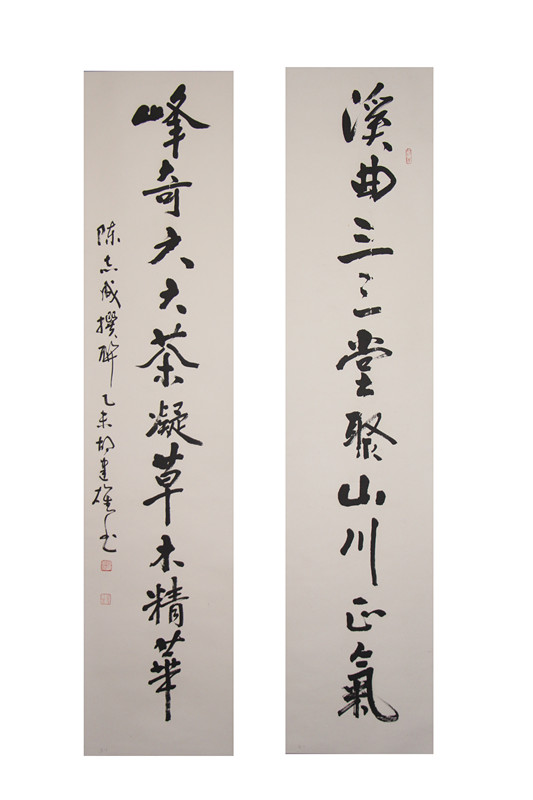 溪曲三三堂聚山川正氣
峰奇六六茶凝草木精華
陈志成撰联乙未胡建雄书